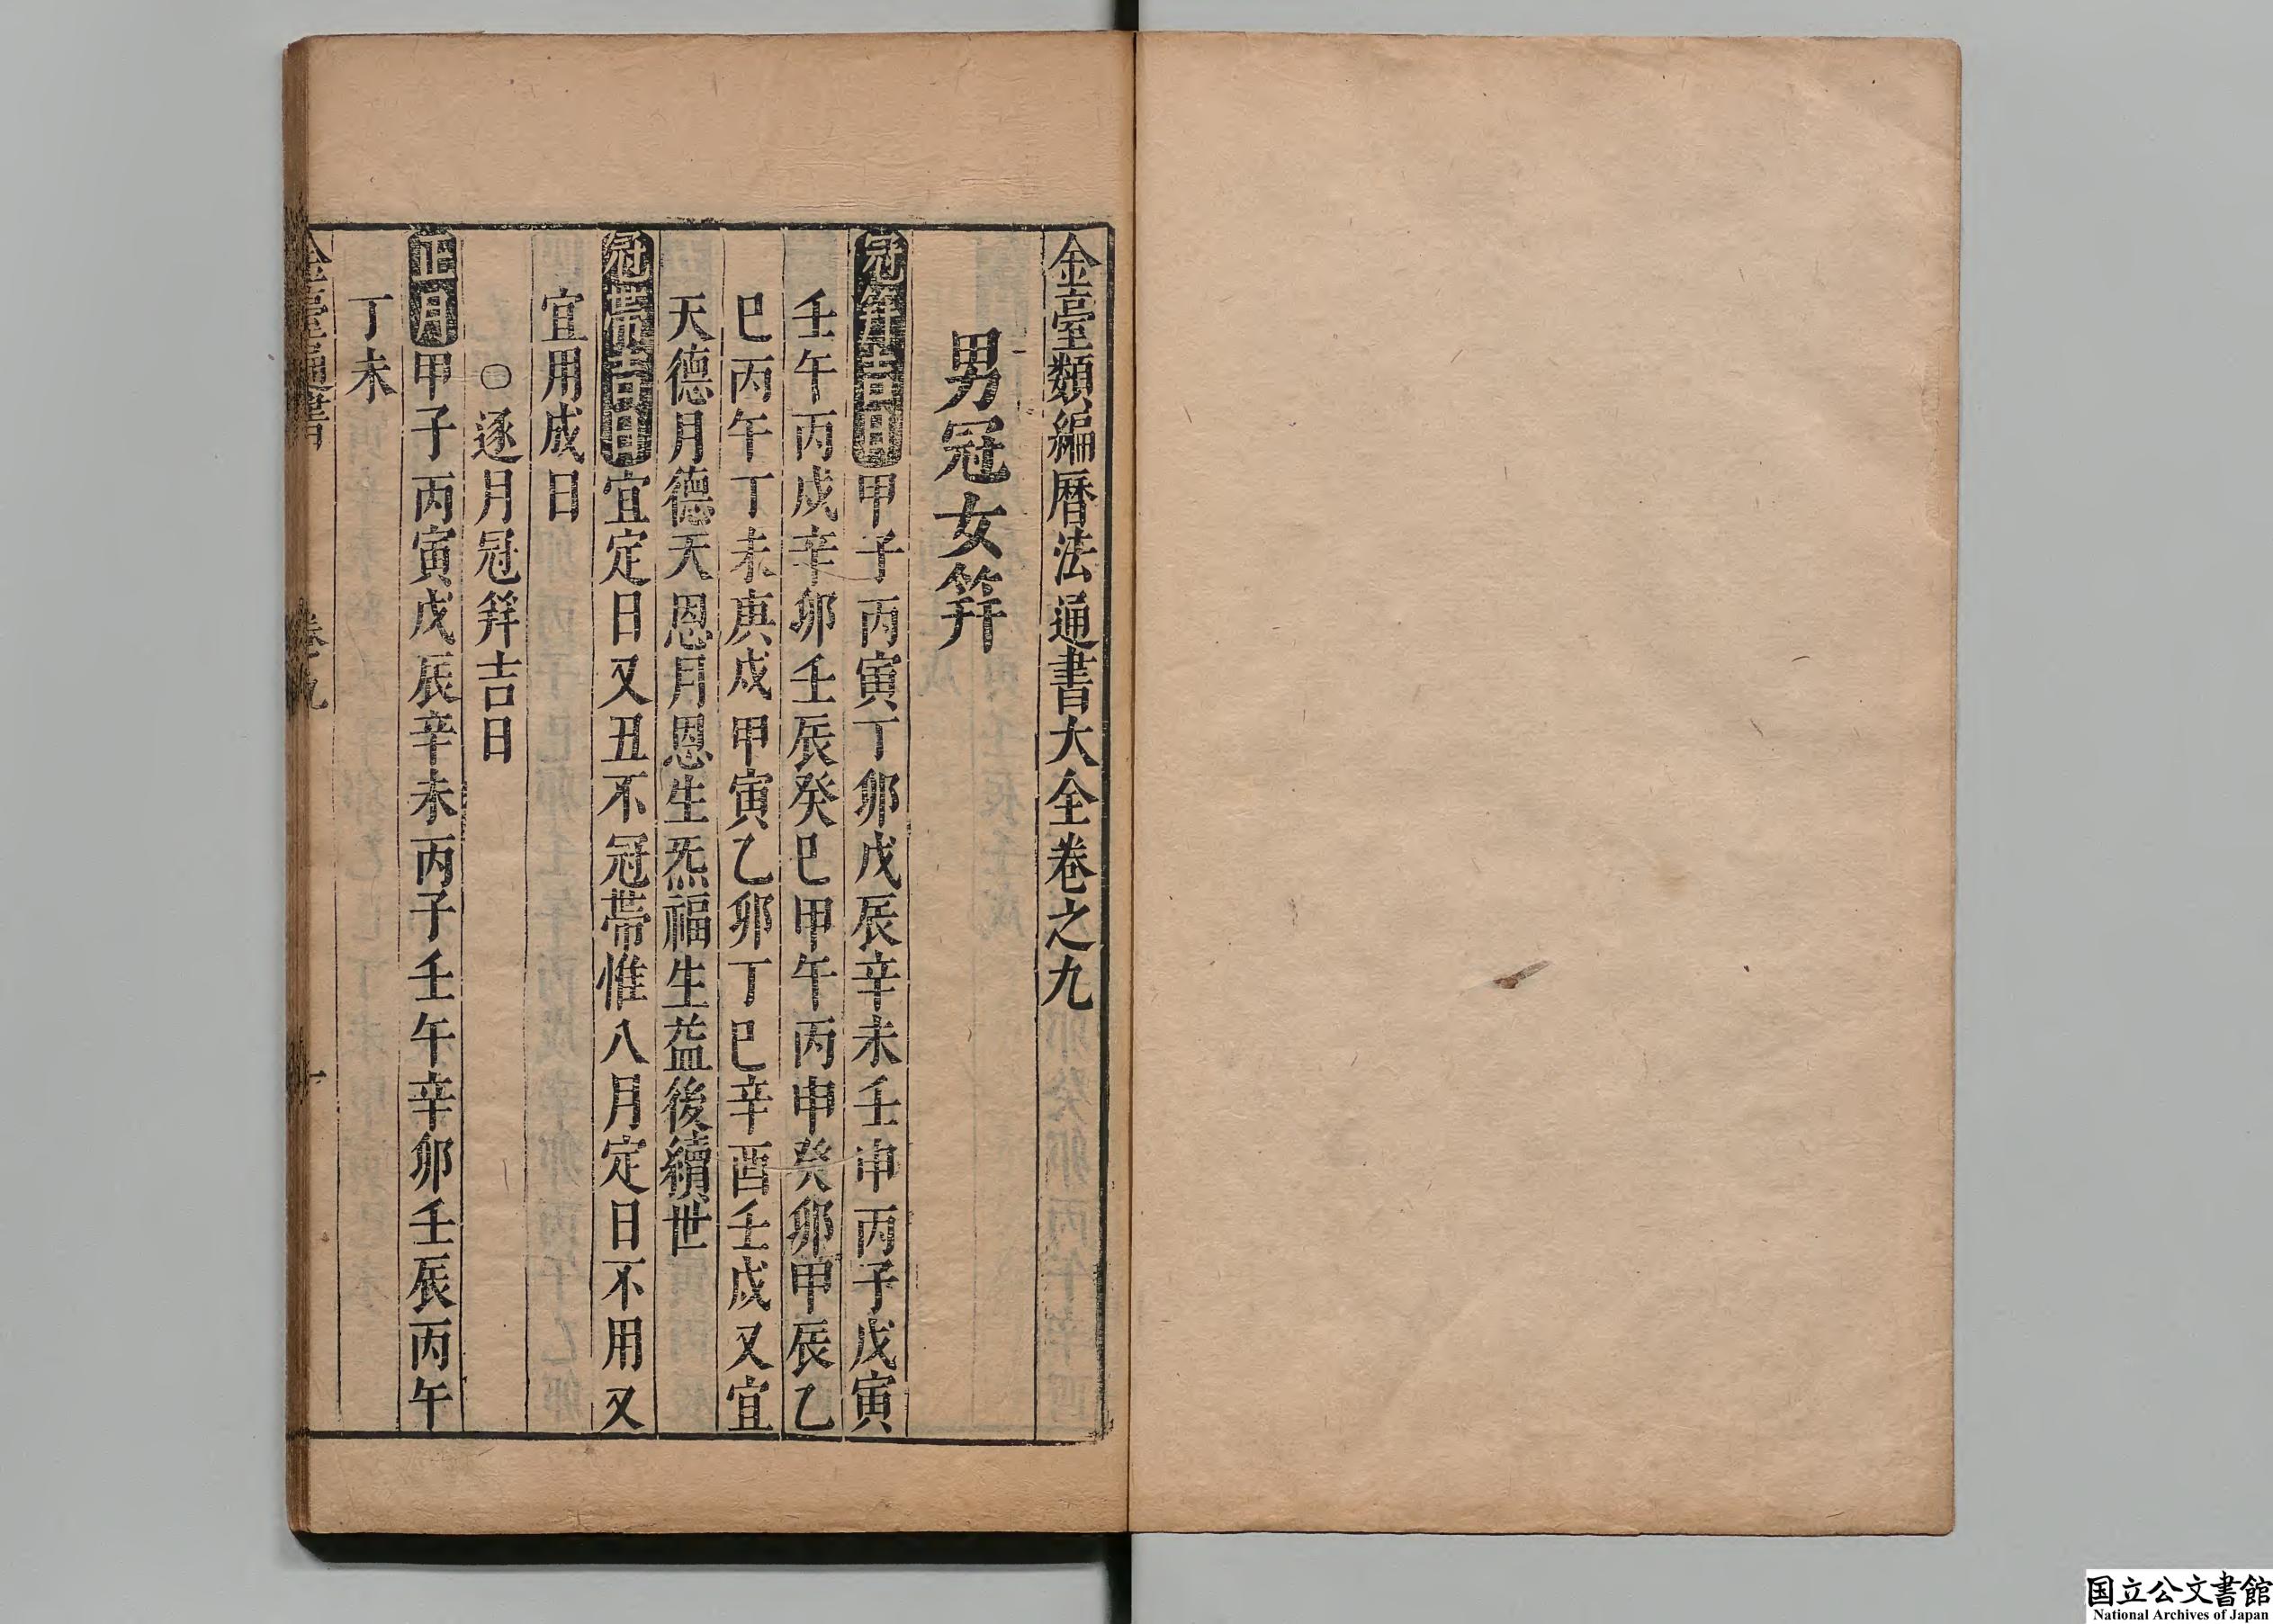 金臺類編曆法通書大全卷之九
男冠女筓
冠笄吉日甲子丙寅丁卯戊辰辛未壬申丙子戊寅
壬午丙戌辛卯壬辰癸巳甲午丙申癸卯甲辰乙
巳丙午丁未庚戌甲寅乙卯丁巳辛酉壬戌又宜
天德月德天恩月恩生炁福生益後續世
冠帶吉日宜定日又丑不冠帶惟八月定日不用又
宜用成日
○逐月冠笄吉日
正月甲子丙寅戊辰辛未丙子壬午辛卯壬辰丙午
丁未
金臺通書
卷九
一
国立公文書館
National Archives of Japan